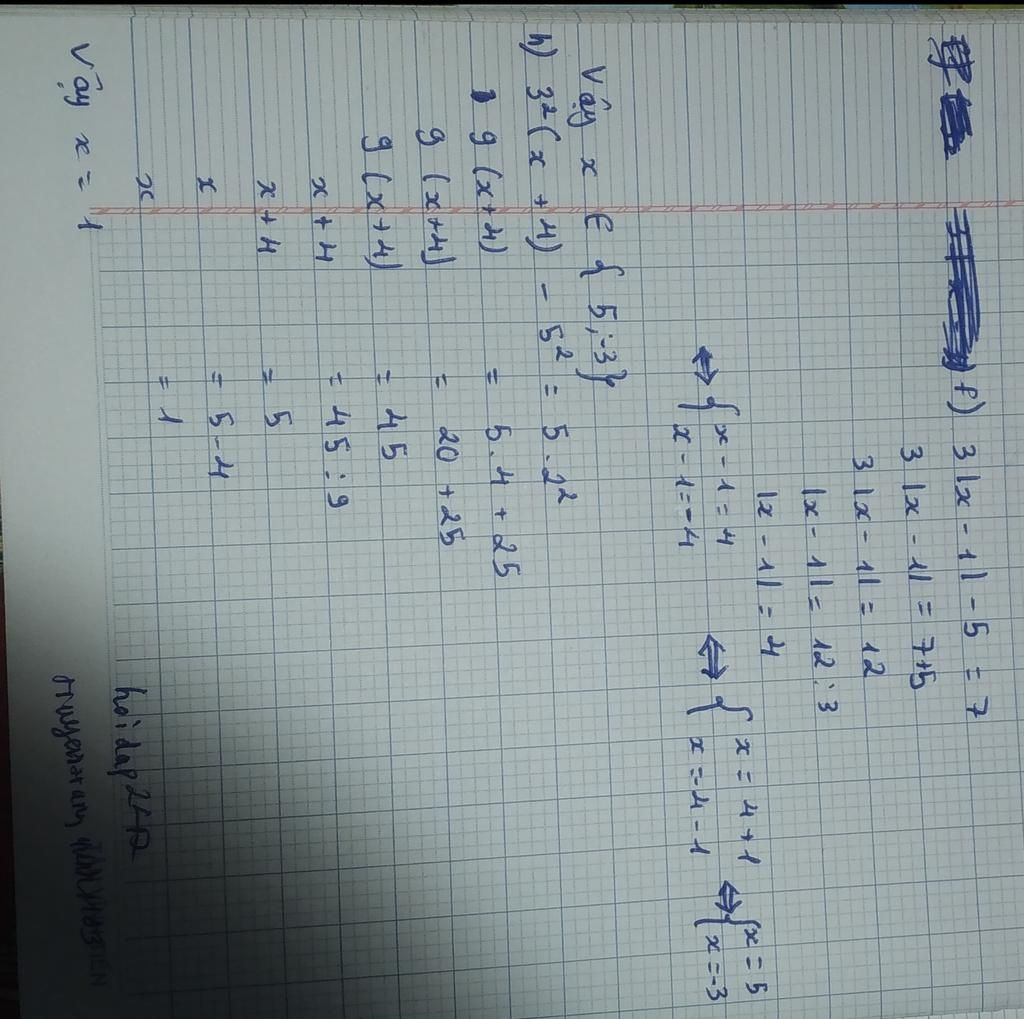 f) 3 |x - 1| - 5 = 7
3 |x - 1| = 7+5
3 |x - 1| = 12
|x - 1| = 12 : 3
|x - 1| = 4
⇔ { x - 1 = 4 ⇔ { x = 4 + 1 ⇔ { x = 5
x - 1 = -4 x = -4 - 1 x = -3
Vậy x ∈ { 5 ; -3 }
h) 3² ( x + 4) - 5² = 5 . 2²
9 (x + 4) = 5 . 4 + 25
9 (x + 4) = 20 + 25
9 (x + 4) = 45
x + 4 = 45 : 9
x + 4 = 5
x = 5 - 4
x = 1
Vậy x = 1
hoidap247